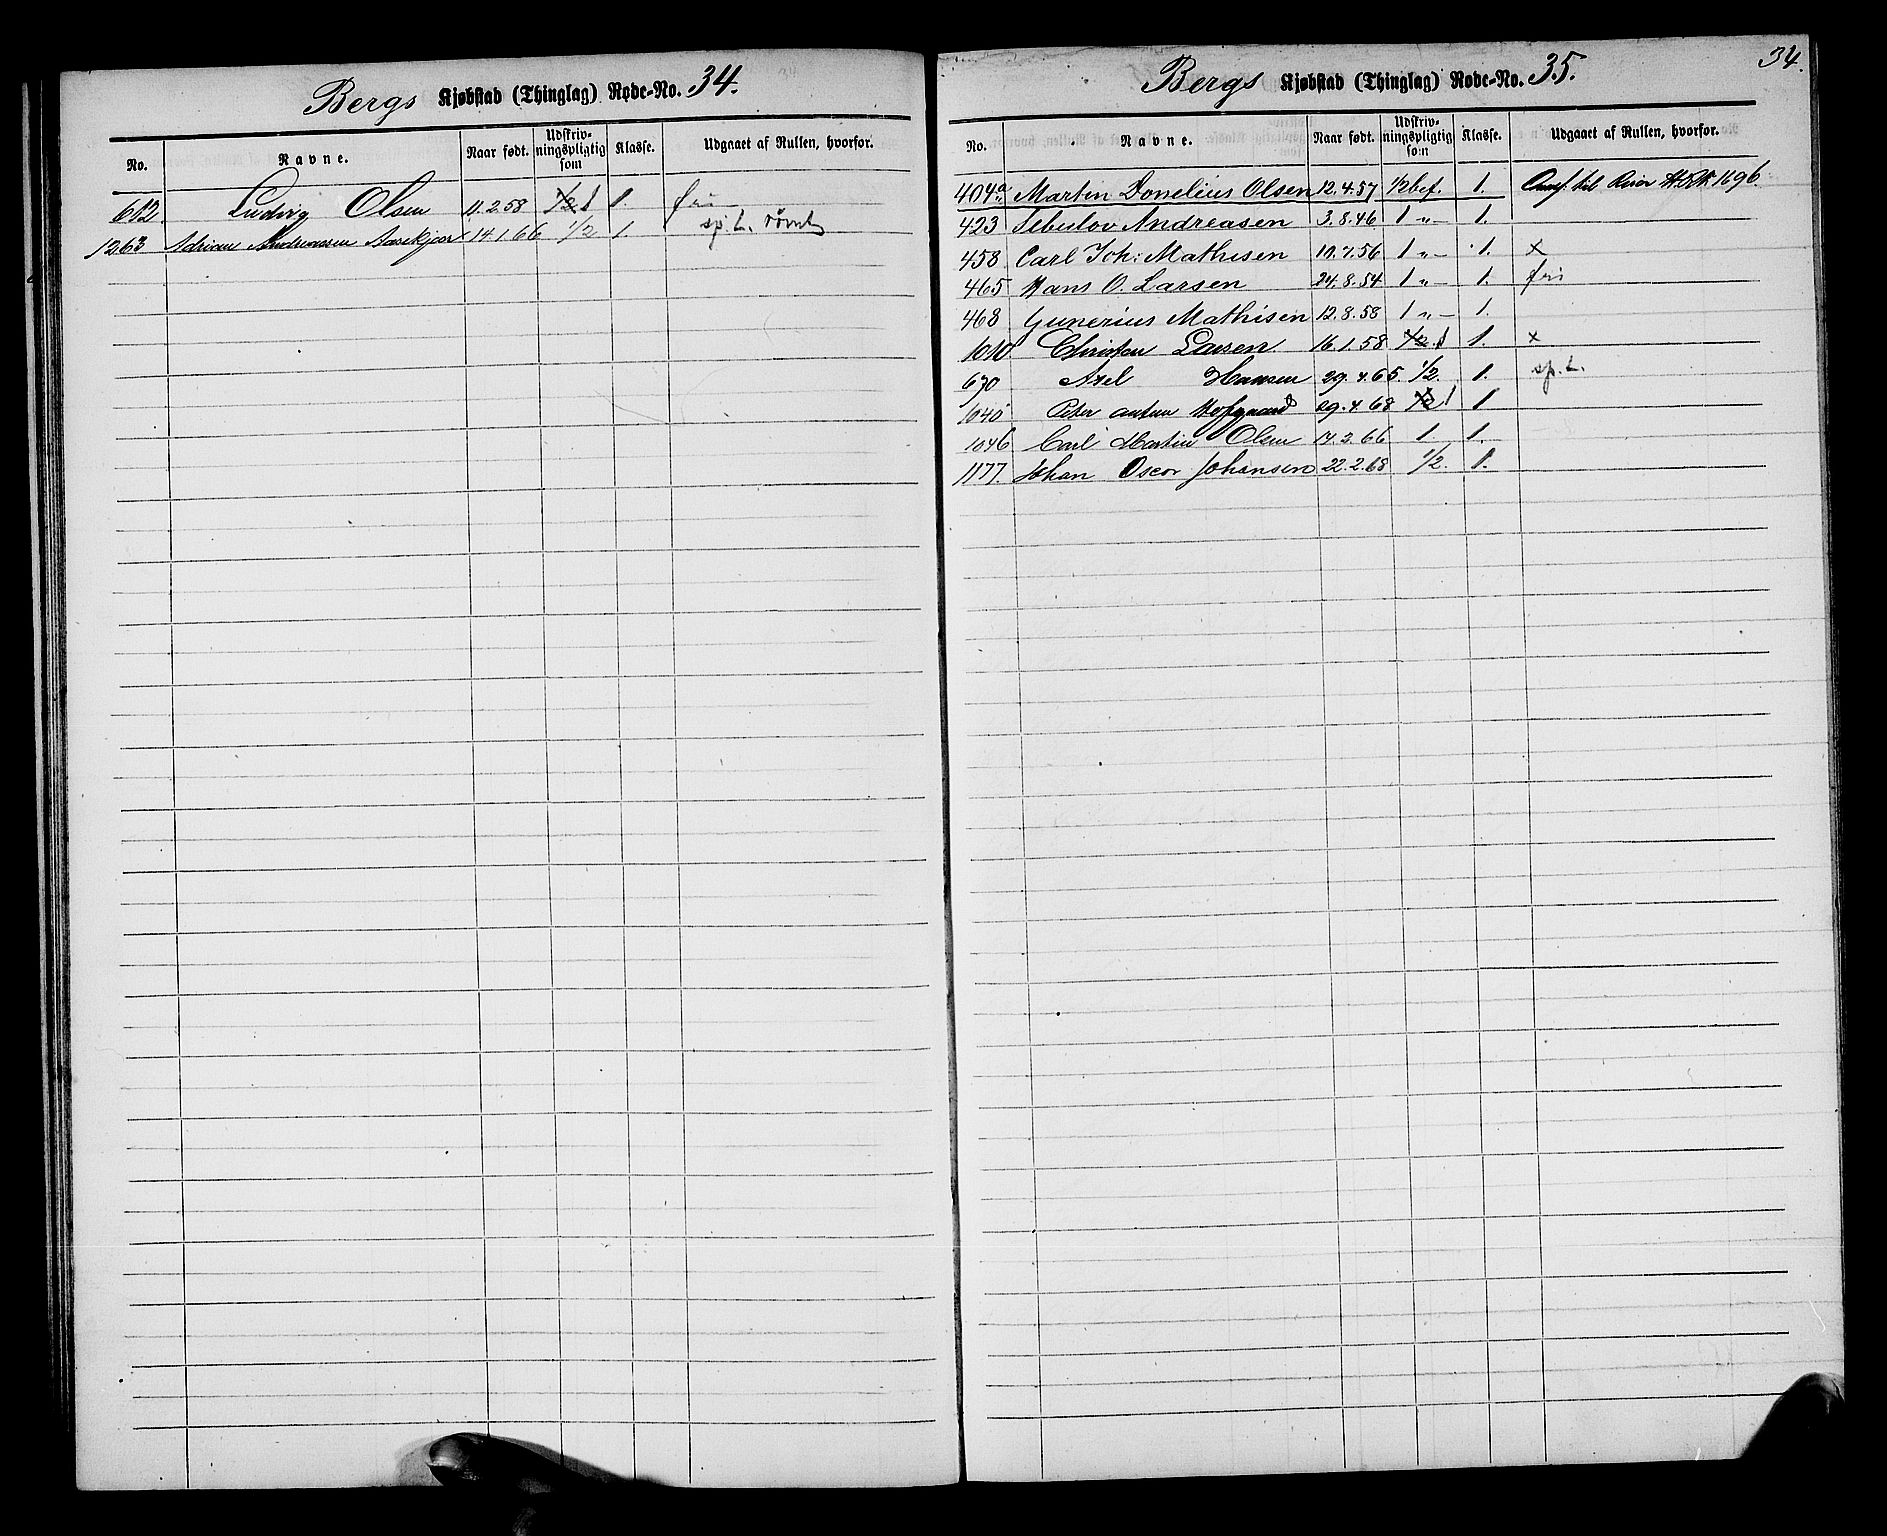 Bergs Kjøbstad (Thinglag) Rode-No. 34.
No. Navne. Naar født. Udskriv-ningspligtig som Klasse. Udgaaet af Rullen, hvorfor.
612 Ludvig Olsen 11.2.58 1/2 1 1. fri
1263 Adrian Andreassen Aasekjær 14.1.66 1/2 1 sp. L. rømt
34.
Bergs Kjøbstad (Thinglag) Rode-No. 35.
No. Navne. Naar født. Udskriv-ningspligtig som Klasse. Udgaaet af Rullen, hvorfor.
404a Martin Donelius Olsen 12.4.57 1/2 bef. 1. til 1696.
423 Andreasen 3.8.46 1 „ — 1.
458 Carl Joh: Mathisen 10.7.56 1 „ — 1. x
465 Hans O. Larsen 24.8.54 1 „ — 1. fri
468 Gunerius Mathisen 12.8.58 1 „ — 1.
1010 Christen Larsen 16.1.58 1/2 1 1. x
670 Axel Hansen 29.4.65 1/2. 1. sp. L.
1040 Peter anton Hofgaard 29.4.68 1/2 1 1
1046 Carl Martin Olsen 17.2.66 1. 1.
1177. Johan Oscar Johansen 22.2.68 1/2. 1.